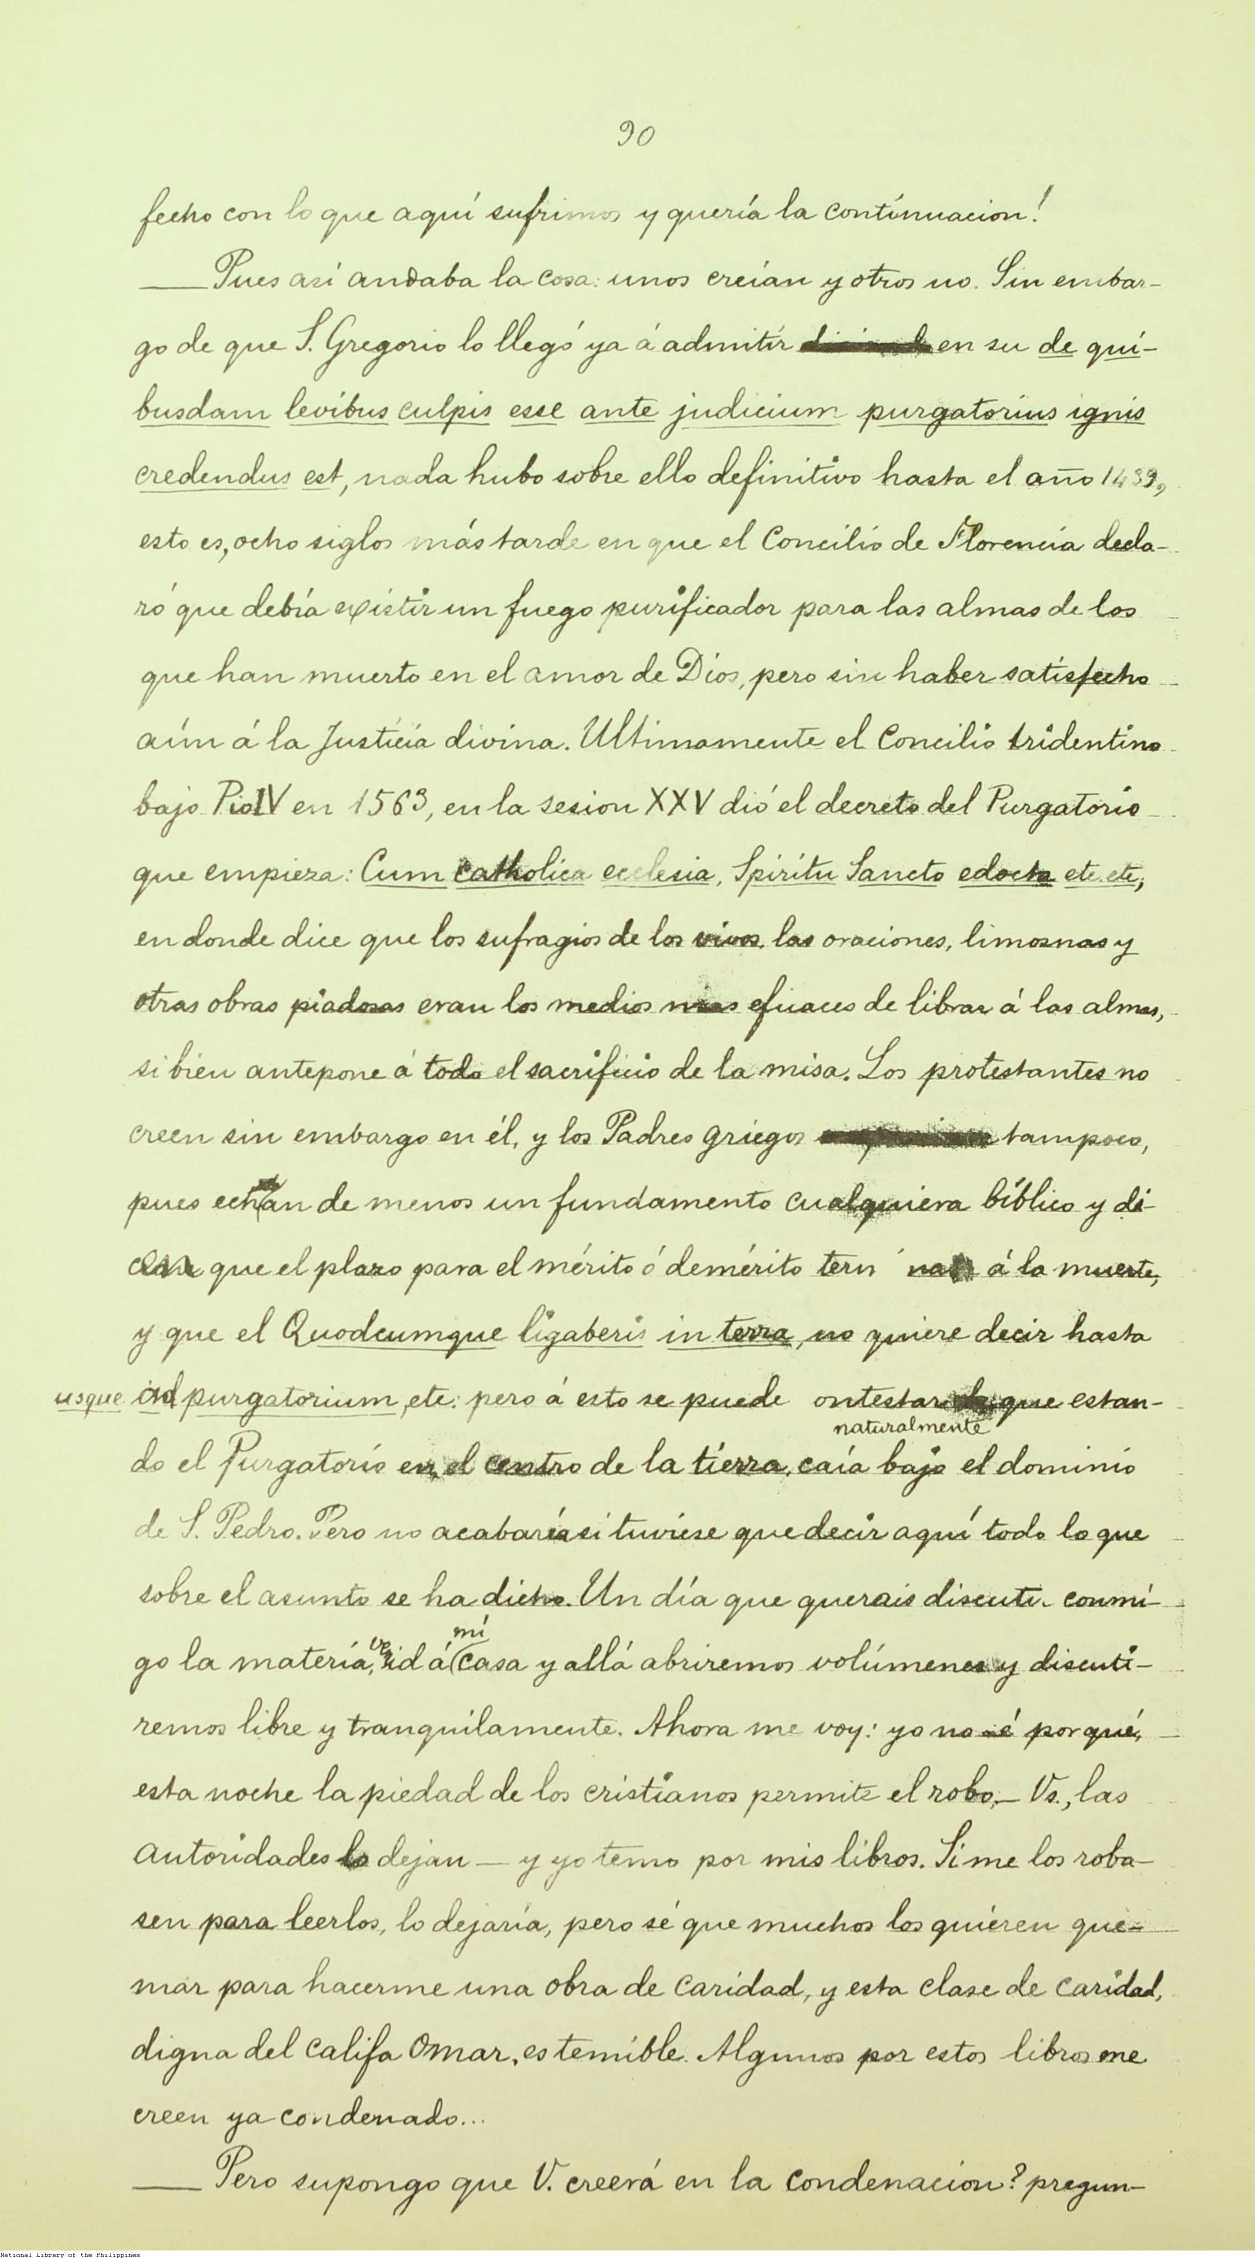 90
fecho con lo que aquí sufrimos y quería la continuacion!
— Pues así andaba la cosa: unos creían y otros no. Sin embar-
go de que S. Gregorio lo llegó ya á admitir en su de qui-
busdam levibus culpis esse ante judicium purgatorius ignis
credendus est, nada hubo sobre ello definitivo hasta el año 1439,
esto es, ocho siglos más tarde en que el Concilio de Florencia decla-
ró que debía existir un fuego purificador para las almas de los
que han muerto en el amor de Dios, pero sin haber satisfecho
aún á la Justicia divina. Ultimamente el Concilio tridentino
bajo Pio IV en 1563, en la sesion XXV dió el decreto del Purgatorio
que empieza: Cum catholica ecclesia, Spiritu Sancto edocta etc. etc,
en donde dice que los sufragios de los vivos, las oraciones, limosnas y
otras obras piadosas eran los medios mas eficaces de librar á las almas,
si bien antepone á todo el sacrificio de la misa. Los protestantes no
creen sin embargo en él, y los Padres griegos tampoco,
pues echan de menos un fundamento cualquiera bíblico y di-
cen que el plazo para el mérito ó demérito á la muerte,
y que el Quodcumque ligaberis in terra, no quiere decir hasta
usque ad purgatorium, etc: pero á esto se puede ontestar que estan-
naturalmente
do el Purgatorio en el centro de la tierra, caía bajo el dominio
de S. Pedro. Pero no acabaría si tuviese que decir aquí todo lo que
sobre el asunto se ha dicho. Un día que querais discuti conmi-
mi
go la materia, venid á casa y allá abriremos volúmenes y discuti-
remos libre y tranquilamente. Ahora me voy: yo no sé por qué,
esta noche la piedad de los cristianos permite el robo,— Vs., las
autoridades lo dejan — y yo temo por mis libros. Si me los roba-
sen para leerlos, lo dejaría, pero sé que muchos los quieren que-
mar para hacerme una obra de caridad, y esta clase de caridad,
digna del califa Omar, es temible. Algunos por estos libros me
creen ya condenado...
— Pero supongo que V. creerá en la condenacion? pregun-
National Library of the Philippines